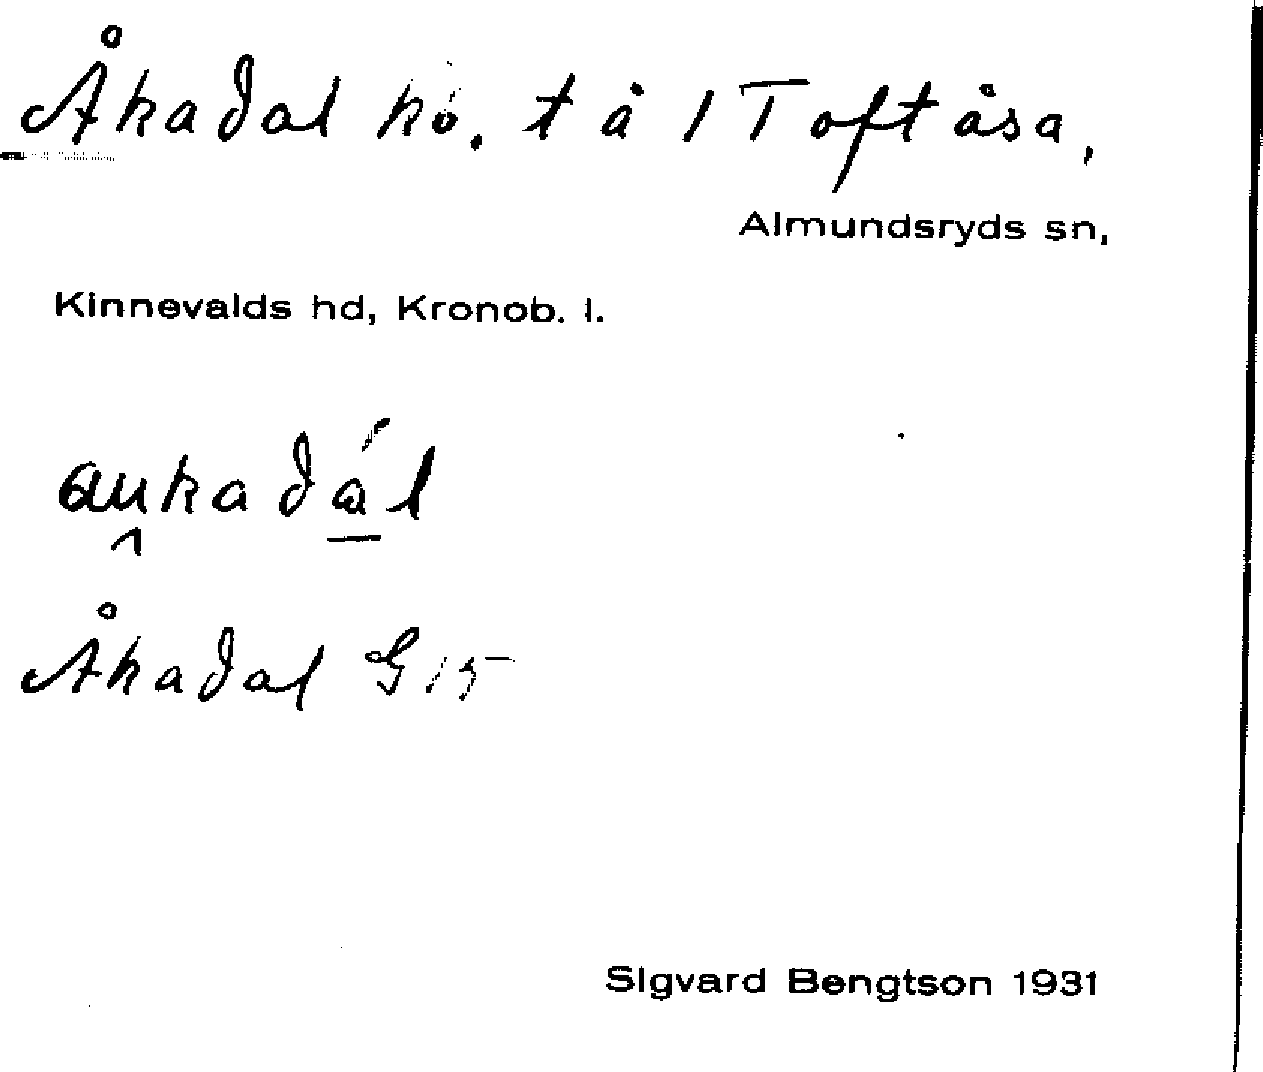 Åkadal kö. t å 1 Toftåsa,
Almundsryds sn,
Kinnevalds hd, Kronob. l.
aukadál
Åkadal G 15
Sigvard Bengtson 1931